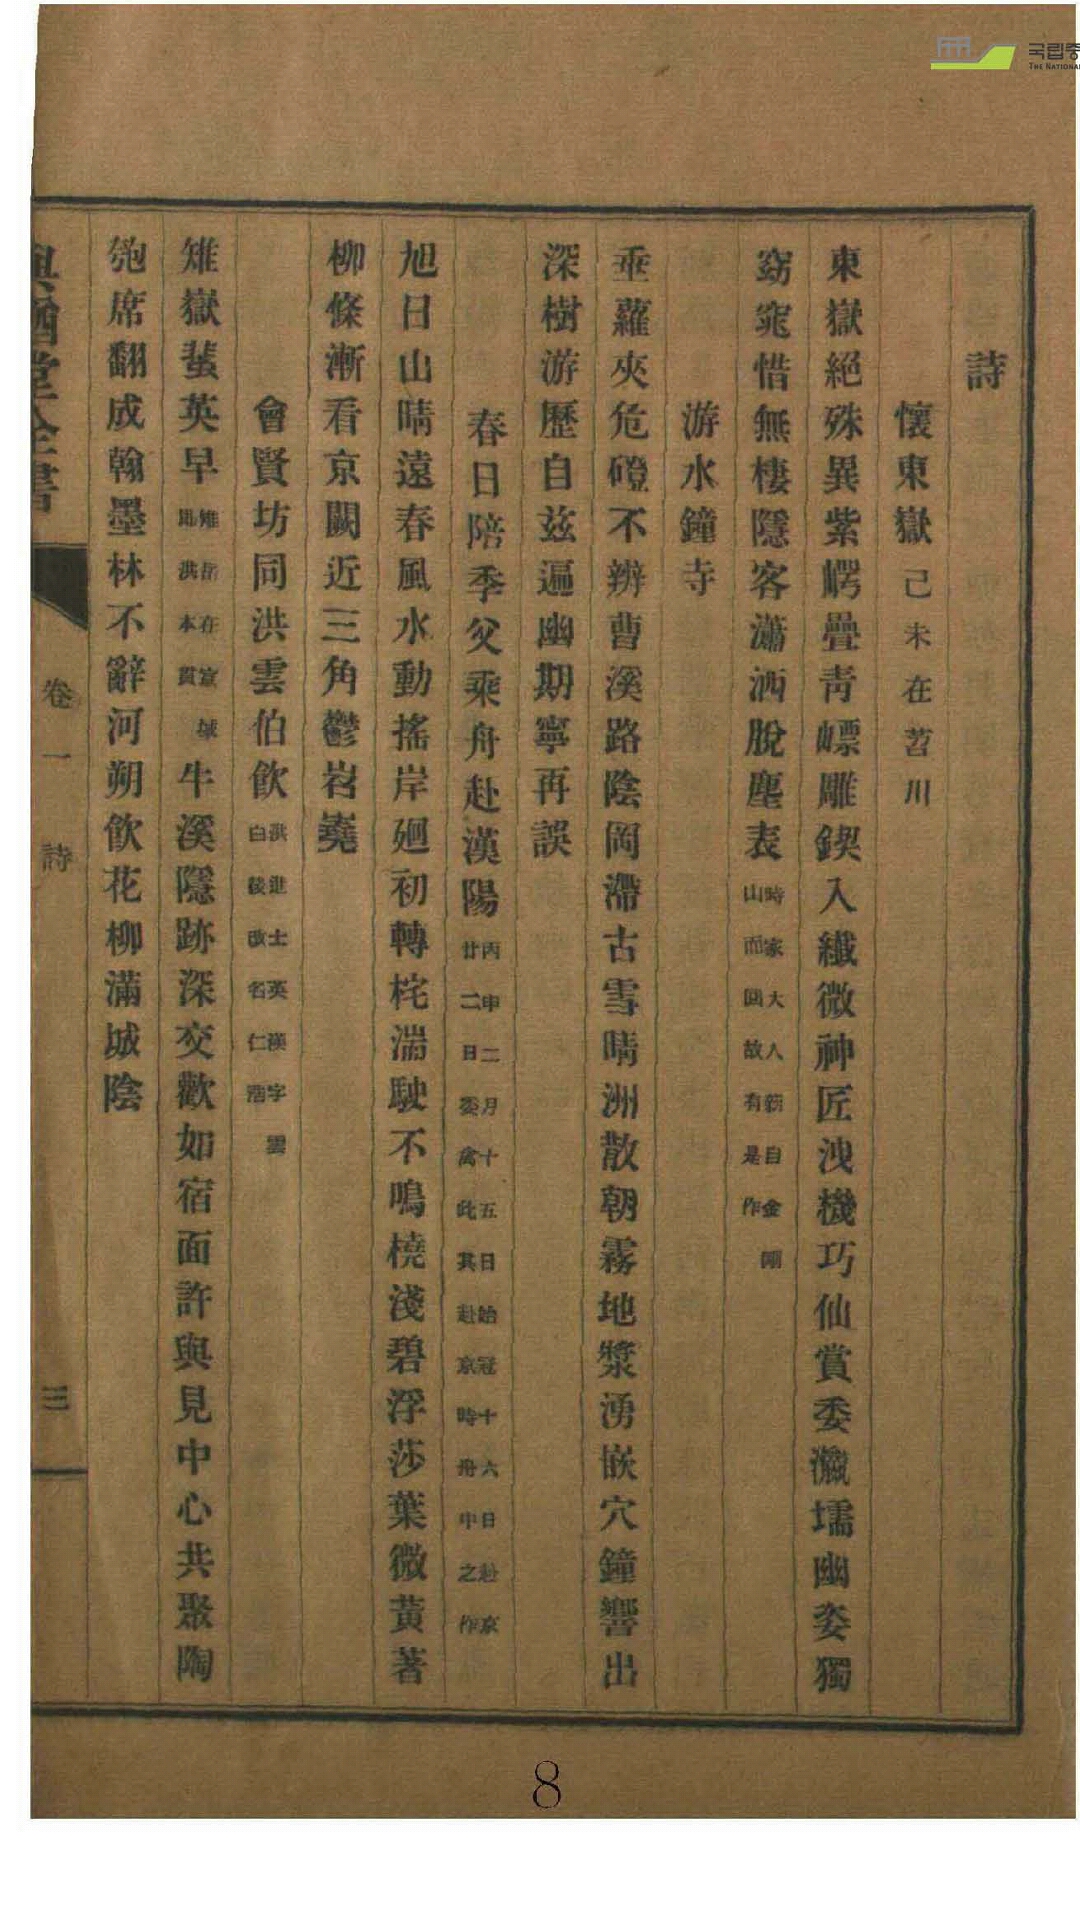 詩
懷東嶽 己未在苕川
東嶽絕殊異紫崿疊靑嶂雕鍥入纖微神匠洩機巧仙賞委瀛壖幽姿獨
窈窕惜無棲隱客瀟洒脫塵表 時家大人新自金剛山而回故有是作
游水鐘寺
垂蘿夾危磴不辨曹溪路陰岡滯古雪晴洲散朝霧地漿湧嵌穴鐘響出
深樹游歷自玆遍幽期寧再誤
春日陪季父乘舟赴漢陽 丙申二月十五日始冠十六日赴京廿二日委禽此其赴京時舟中之作
旭日山晴遠春風水動搖岸廻初轉柁湍駛不鳴橈淺碧浮莎葉微黃著
柳條漸看京闕近三角鬱岧嶤
會賢坊同洪雲伯飮 洪進士英漢字雲伯後改名仁浩
雉嶽蜚英早 雉岳在富城卽洪本貫 牛溪隱跡深交歡如宿面許與見中心共聚陶
匏席翻成翰墨林不辭河朔飮花柳滿城陰
與猶堂全書
卷一
詩
三
8
국립중
THE NATIONA